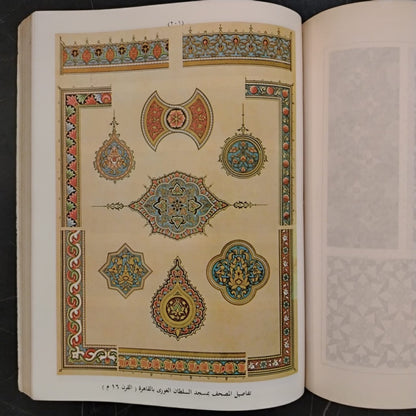 (٢٠١)
تفاصيل المصحف بمسجد السلطان الغورى بالقاهرة ( القرن ١٦ م )